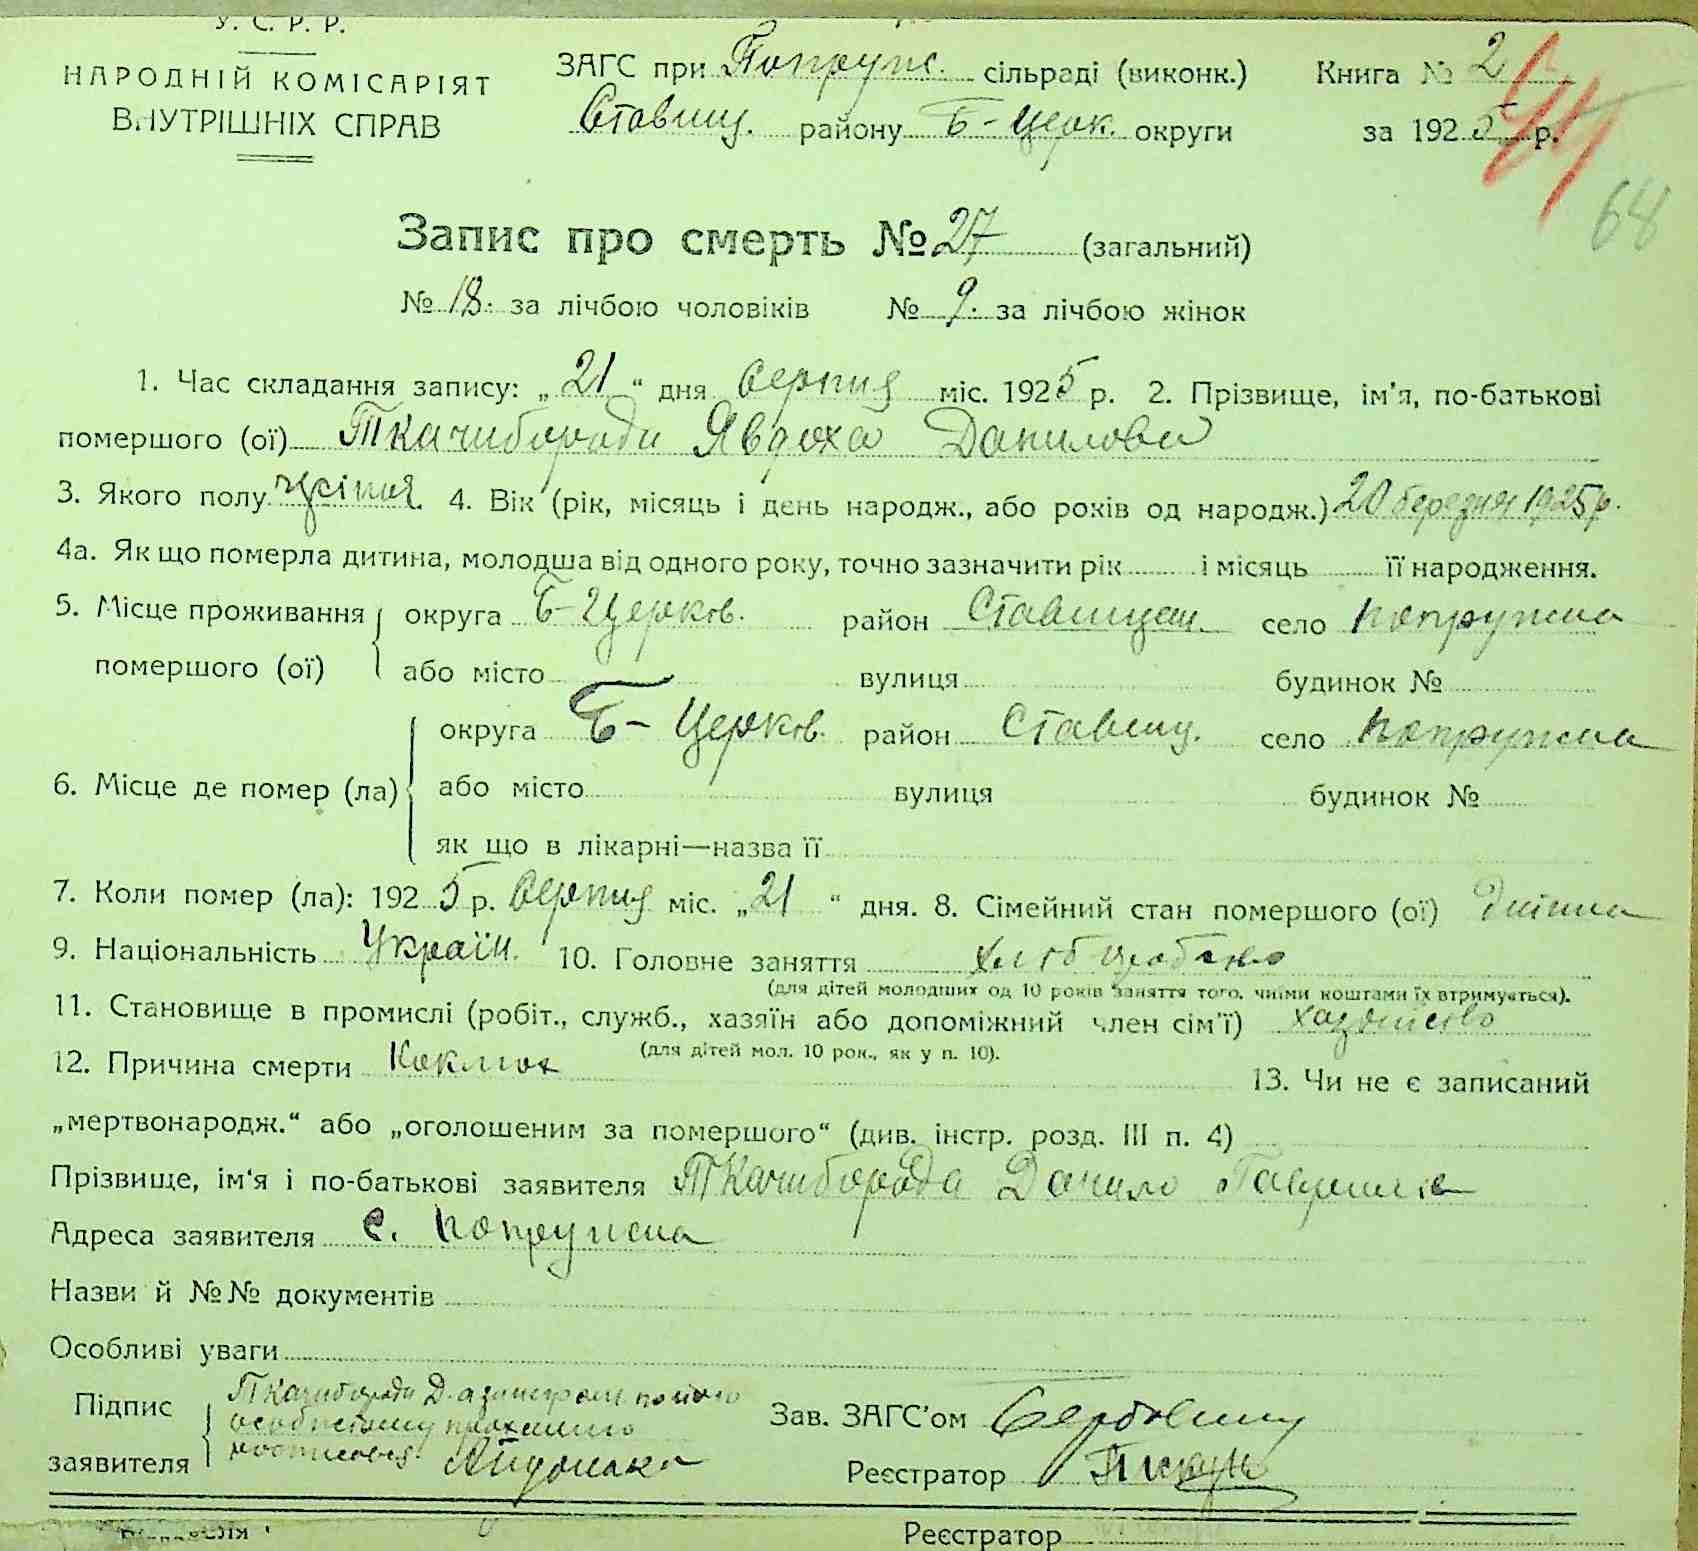 У. С. Р. Р.
НАРОДНІЙ КОМІСАРІЯТ
ВНУТРІШНІХ СПРАВ
ЗАГС при Попруж. сільраді (виконк.) Книга № 2
Ставищ. району Б-Церк. округи за 1925 р.
68
Запис про смерть № 27 (загальний)
№ 18. за лічбою чоловіків № 9. за лічбою жінок
1. Час складання запису: „21“ дня серпня міс. 1925 р. 2. Прізвище, ім'я, по-батькові
помершого (ої) Ткачиборода Явдоха Данилова
3. Якого полу жіноч. 4. Вік (рік, місяць і день народж., або років од народж.) 20 березня 1925 р.
4а. Як що померла дитина, молодша від одного року, точно зазначити рік і місяць її народження.
5. Місце проживання помершого (ої) округа Б-Церков. район Ставищан. село Попружна
або місто вулиця будинок №
6. Місце де помер (ла) округа Б-Церков. район Ставищ. село Попружна
або місто вулиця будинок №
як що в лікарні—назва її
7. Коли помер (ла): 1925 р. серпня міс. „21“ дня. 8. Сімейний стан помершого (ої) дитина
9. Національність Україн. 10. Головне заняття хліборобство
(для дітей молодших од 10 років заняття того, чиїми коштами їх втримується).
11. Становище в промислі (робіт., служб., хазяїн або допоміжний член сім'ї)
(для дітей мол. 10 рок., як у п. 10).
12. Причина смерти Коклюх 13. Чи не є записаний
„мертвонародж.“ або „оголошеним за помершого“ (див. інстр. розд. III п. 4)
Прізвище, ім'я і по-батькові заявителя Ткачиборода Данило
Адреса заявителя с. Попружна
Назви й №№ документів
Особливі уваги
Підпис заявителя Ткачиборода Д. а
особистому проханню
Зав. ЗАГС'ом
Реєстратор
Реєстратор